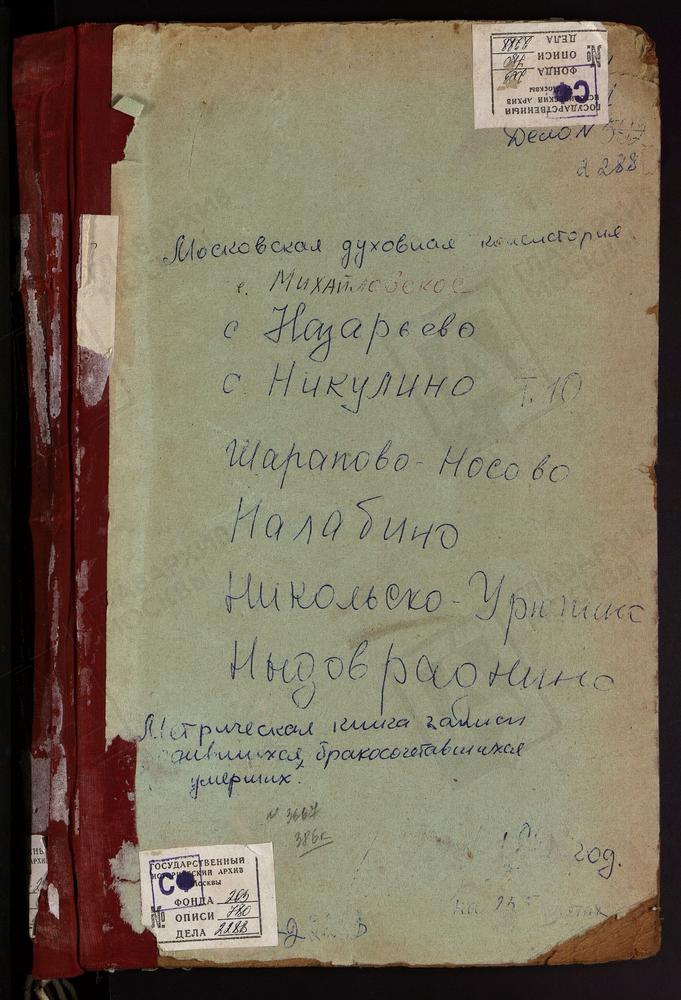 ГОСУДАРСТВЕННЫЙ
ИСТОРИЧЕСКИЙ АРХИВ
МОСКВЫ
СФ
ФОНДА 203
№ ОПИСИ 780
ДЕЛА 2288
Дело N
2288
Московская духовная консистория
с. Михайловское
с Назарьево
с Никулино т. 10
Шарапово-Носово
Налабино
Никольско-Урюпино
Метрическая книга записи
бракосочетавшихся
умерших.
N 3667
год.
на
ГОСУДАРСТВЕННЫЙ
ИСТОРИЧЕСКИЙ АРХИВ
МОСКВЫ
СФ
ФОНДА 203
№ ОПИСИ 780
ДЕЛА 2288
ГЛАВАРХИВ
МОСКВЫ